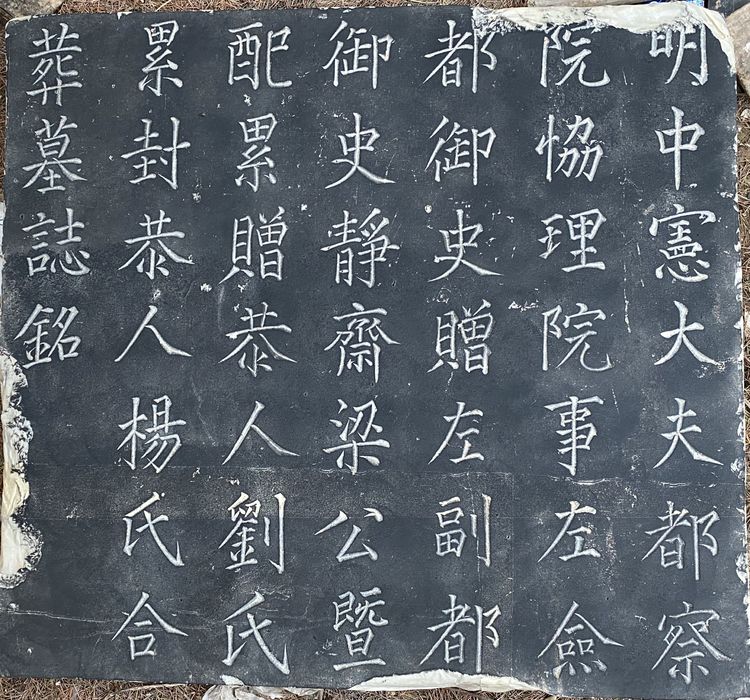 明中憲大夫都察
院恊理院事左僉
都御史贈左副都
御史靜齋梁公暨
配累贈恭人劉氏
累封恭人楊氏合
葬墓誌銘